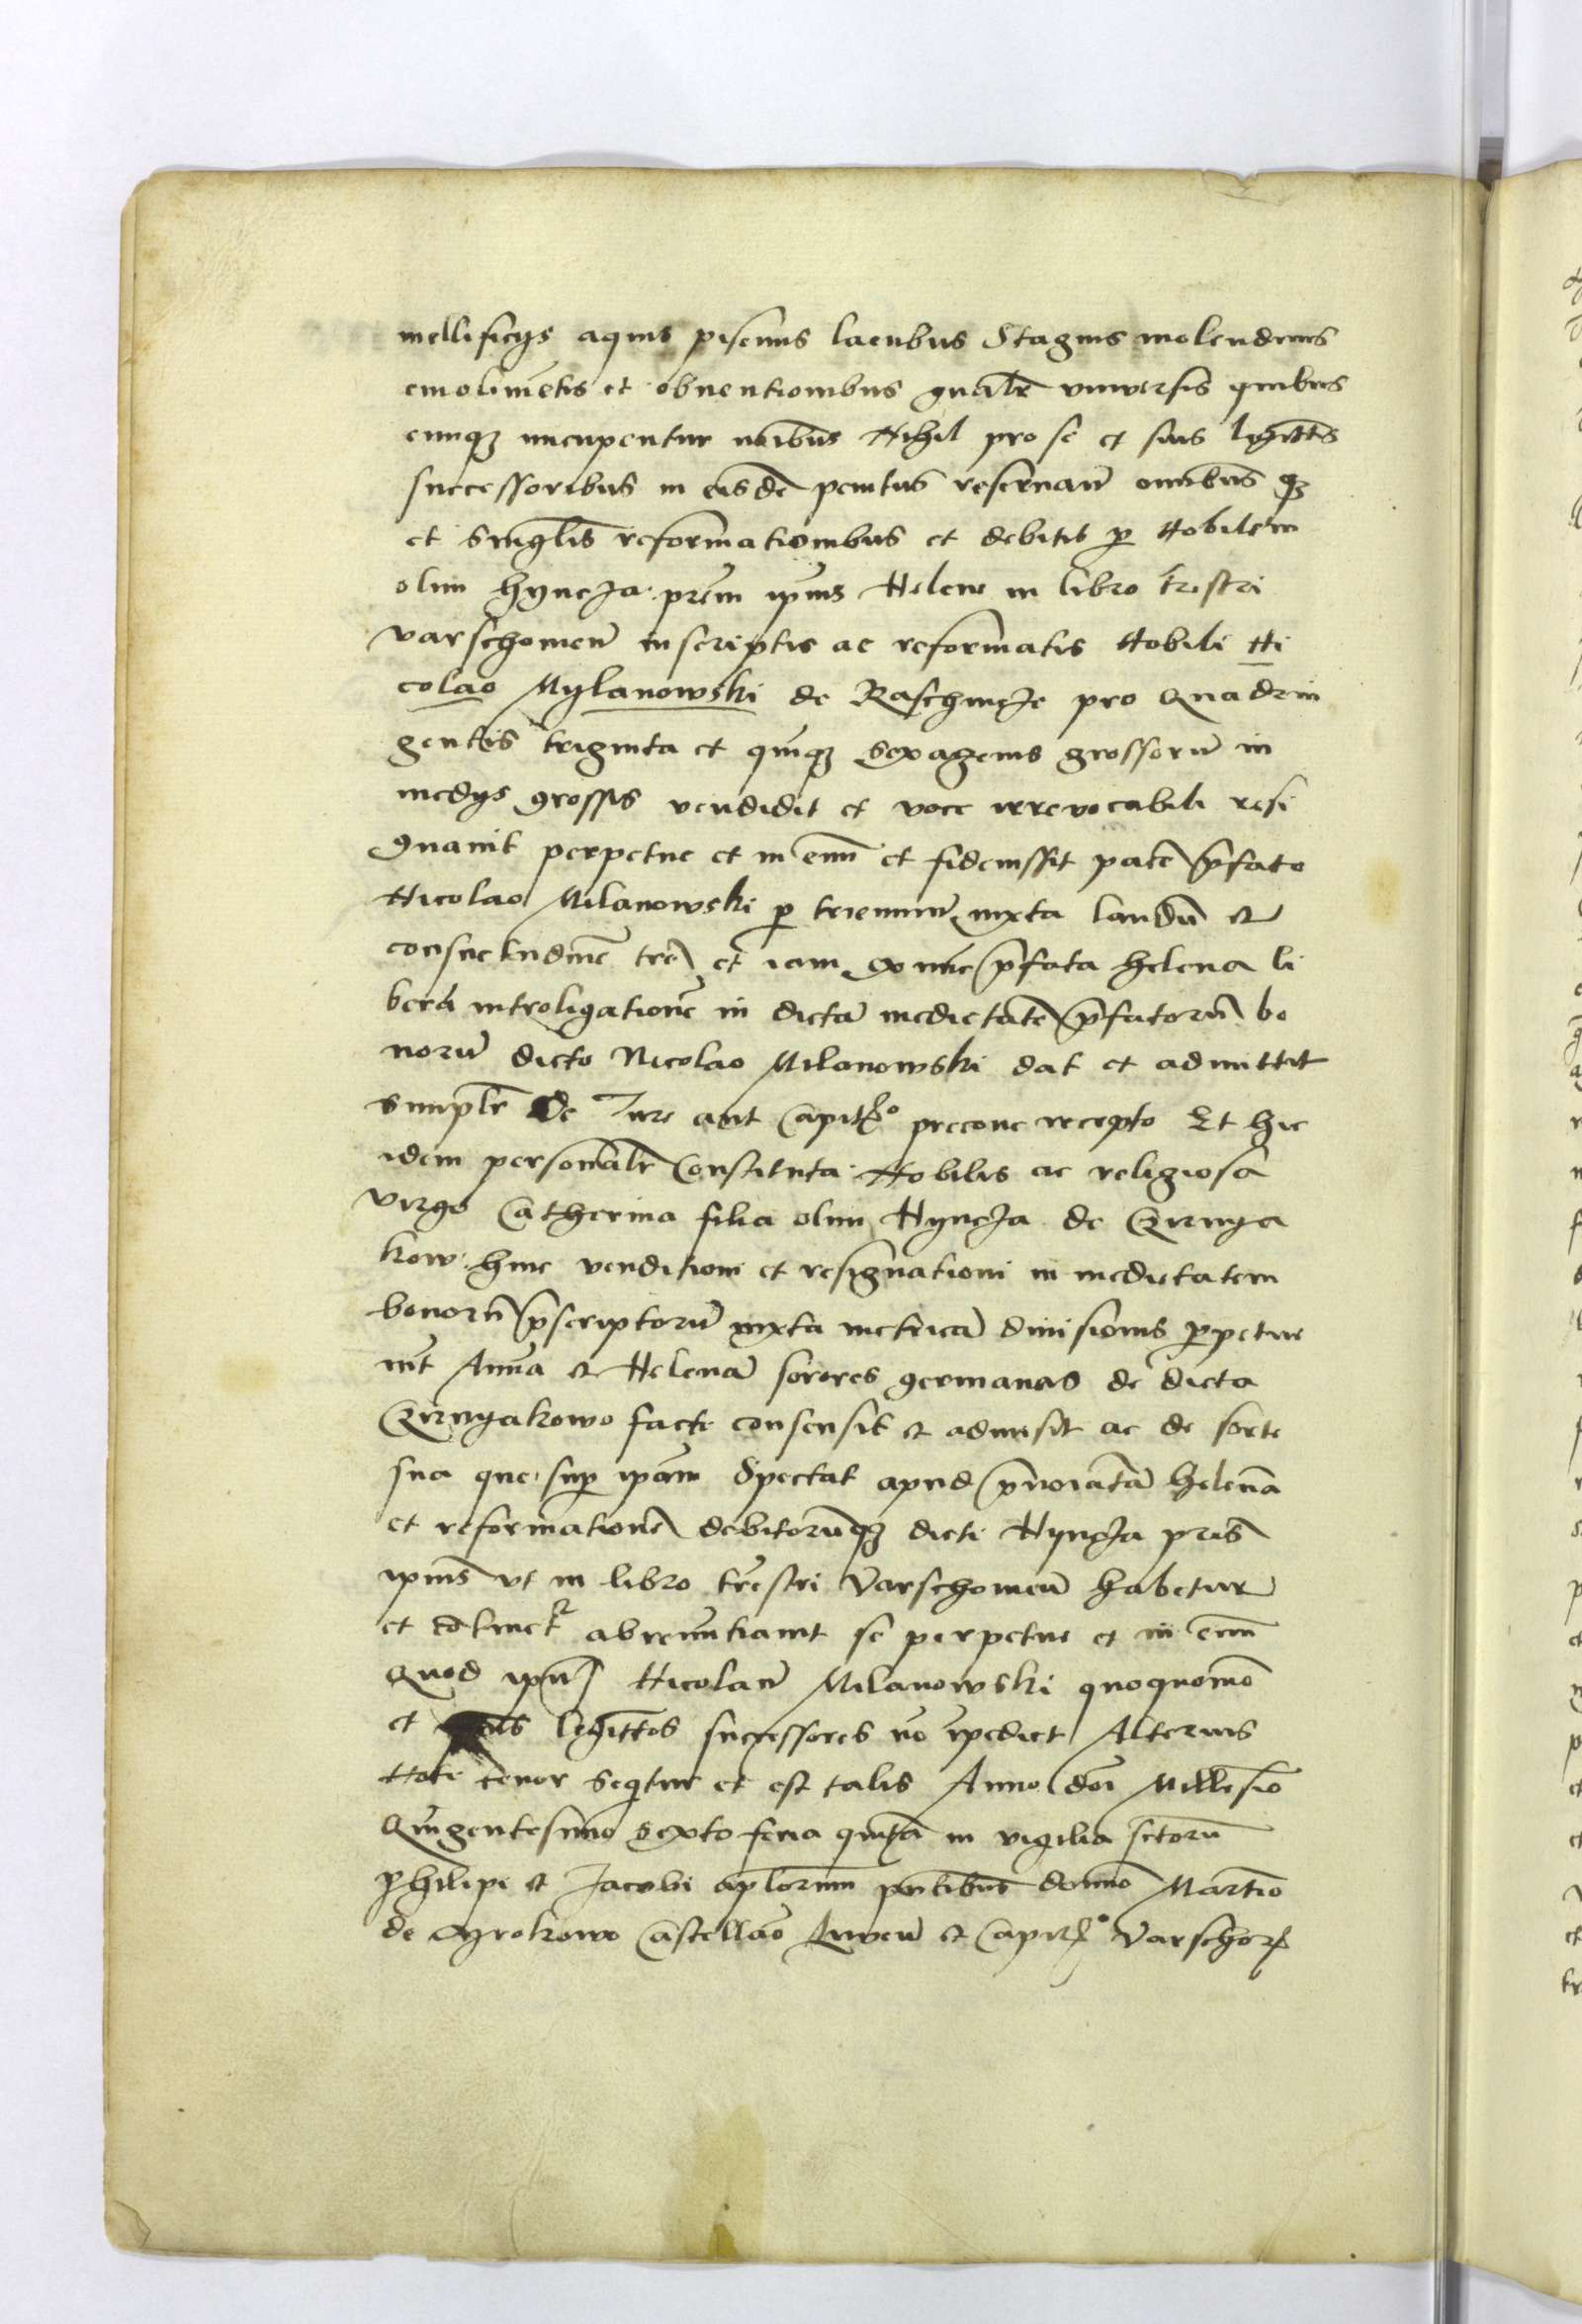 mellificijs aquis piscinis lacubus Stagnis molendinis
emolimẽtis et obuentionibus gnãlr̃ vniuersis quibus
cunqз nuncupentur nõibus Nihil pro se et suis legittis
successoribus in eisdẽ penitus reseruanᷠ omnibus qз
et singlĩs reformationibus et debitis p Nobilem
olim Hyncza prẽm ipĩus Helene in libro trẽstri
varschouienᷠ inscriptis ac reformatis Nobili Ni
colao Mylanowski de Raschincze pro Quadrin
gentis triginta et quĩqз sexagenis grossorũ in
medijs grossis vendidit et voce irreuocabili resi
gnauit perpetue et in euũ et fideiussit pacẽ p̃fato
Nicolao Milanowski p trienniũ iuxta laudũ et
consuetudinẽ trẽ et iam ex nũc p̃fata Helena li
berã introligationẽ in dictã medietatẽ p̃fatorũ bo
norũ dicto Nicolao Milanowski dat et admittit
simplr̃ De Jure aut Capitᵒ precone recepto Et hic
idem personalr̃ Constituta Nobilis ac religiosa
virgo Catherina filia olim Hyncza de
kow huic venditioni et resignationi in medietatem
bonorũ p̃scriptorũ iuxta metricã diuisionis ppetue
int̃ Annã et Helenã sorores germanas de dicta
facte consensit et admisit ac de sorte
sua que sup ipãm Spectat apud p̃noĩatã Helenã
et reformationẽ debitorũqз dicti Hyncza pris̃
ipĩus vt in libro trẽstri Varschouienᷠ habetur
et abrenũtiauit se perpetue et in euũ
Quod ipũ Nicolaũ Milanowski quoquomõ
et legittos successores nõ ĩpediet Alterius
Note tenor seqtur et est talis Anno dñi Millesĩo
Quĩgentesimo sexto feria quĩta in vigilia sctorũ
Philipi et Jacobi aplorum pñtibus domĩo Martĩo
de Castellão et Capitᵒ Varschoᷠ